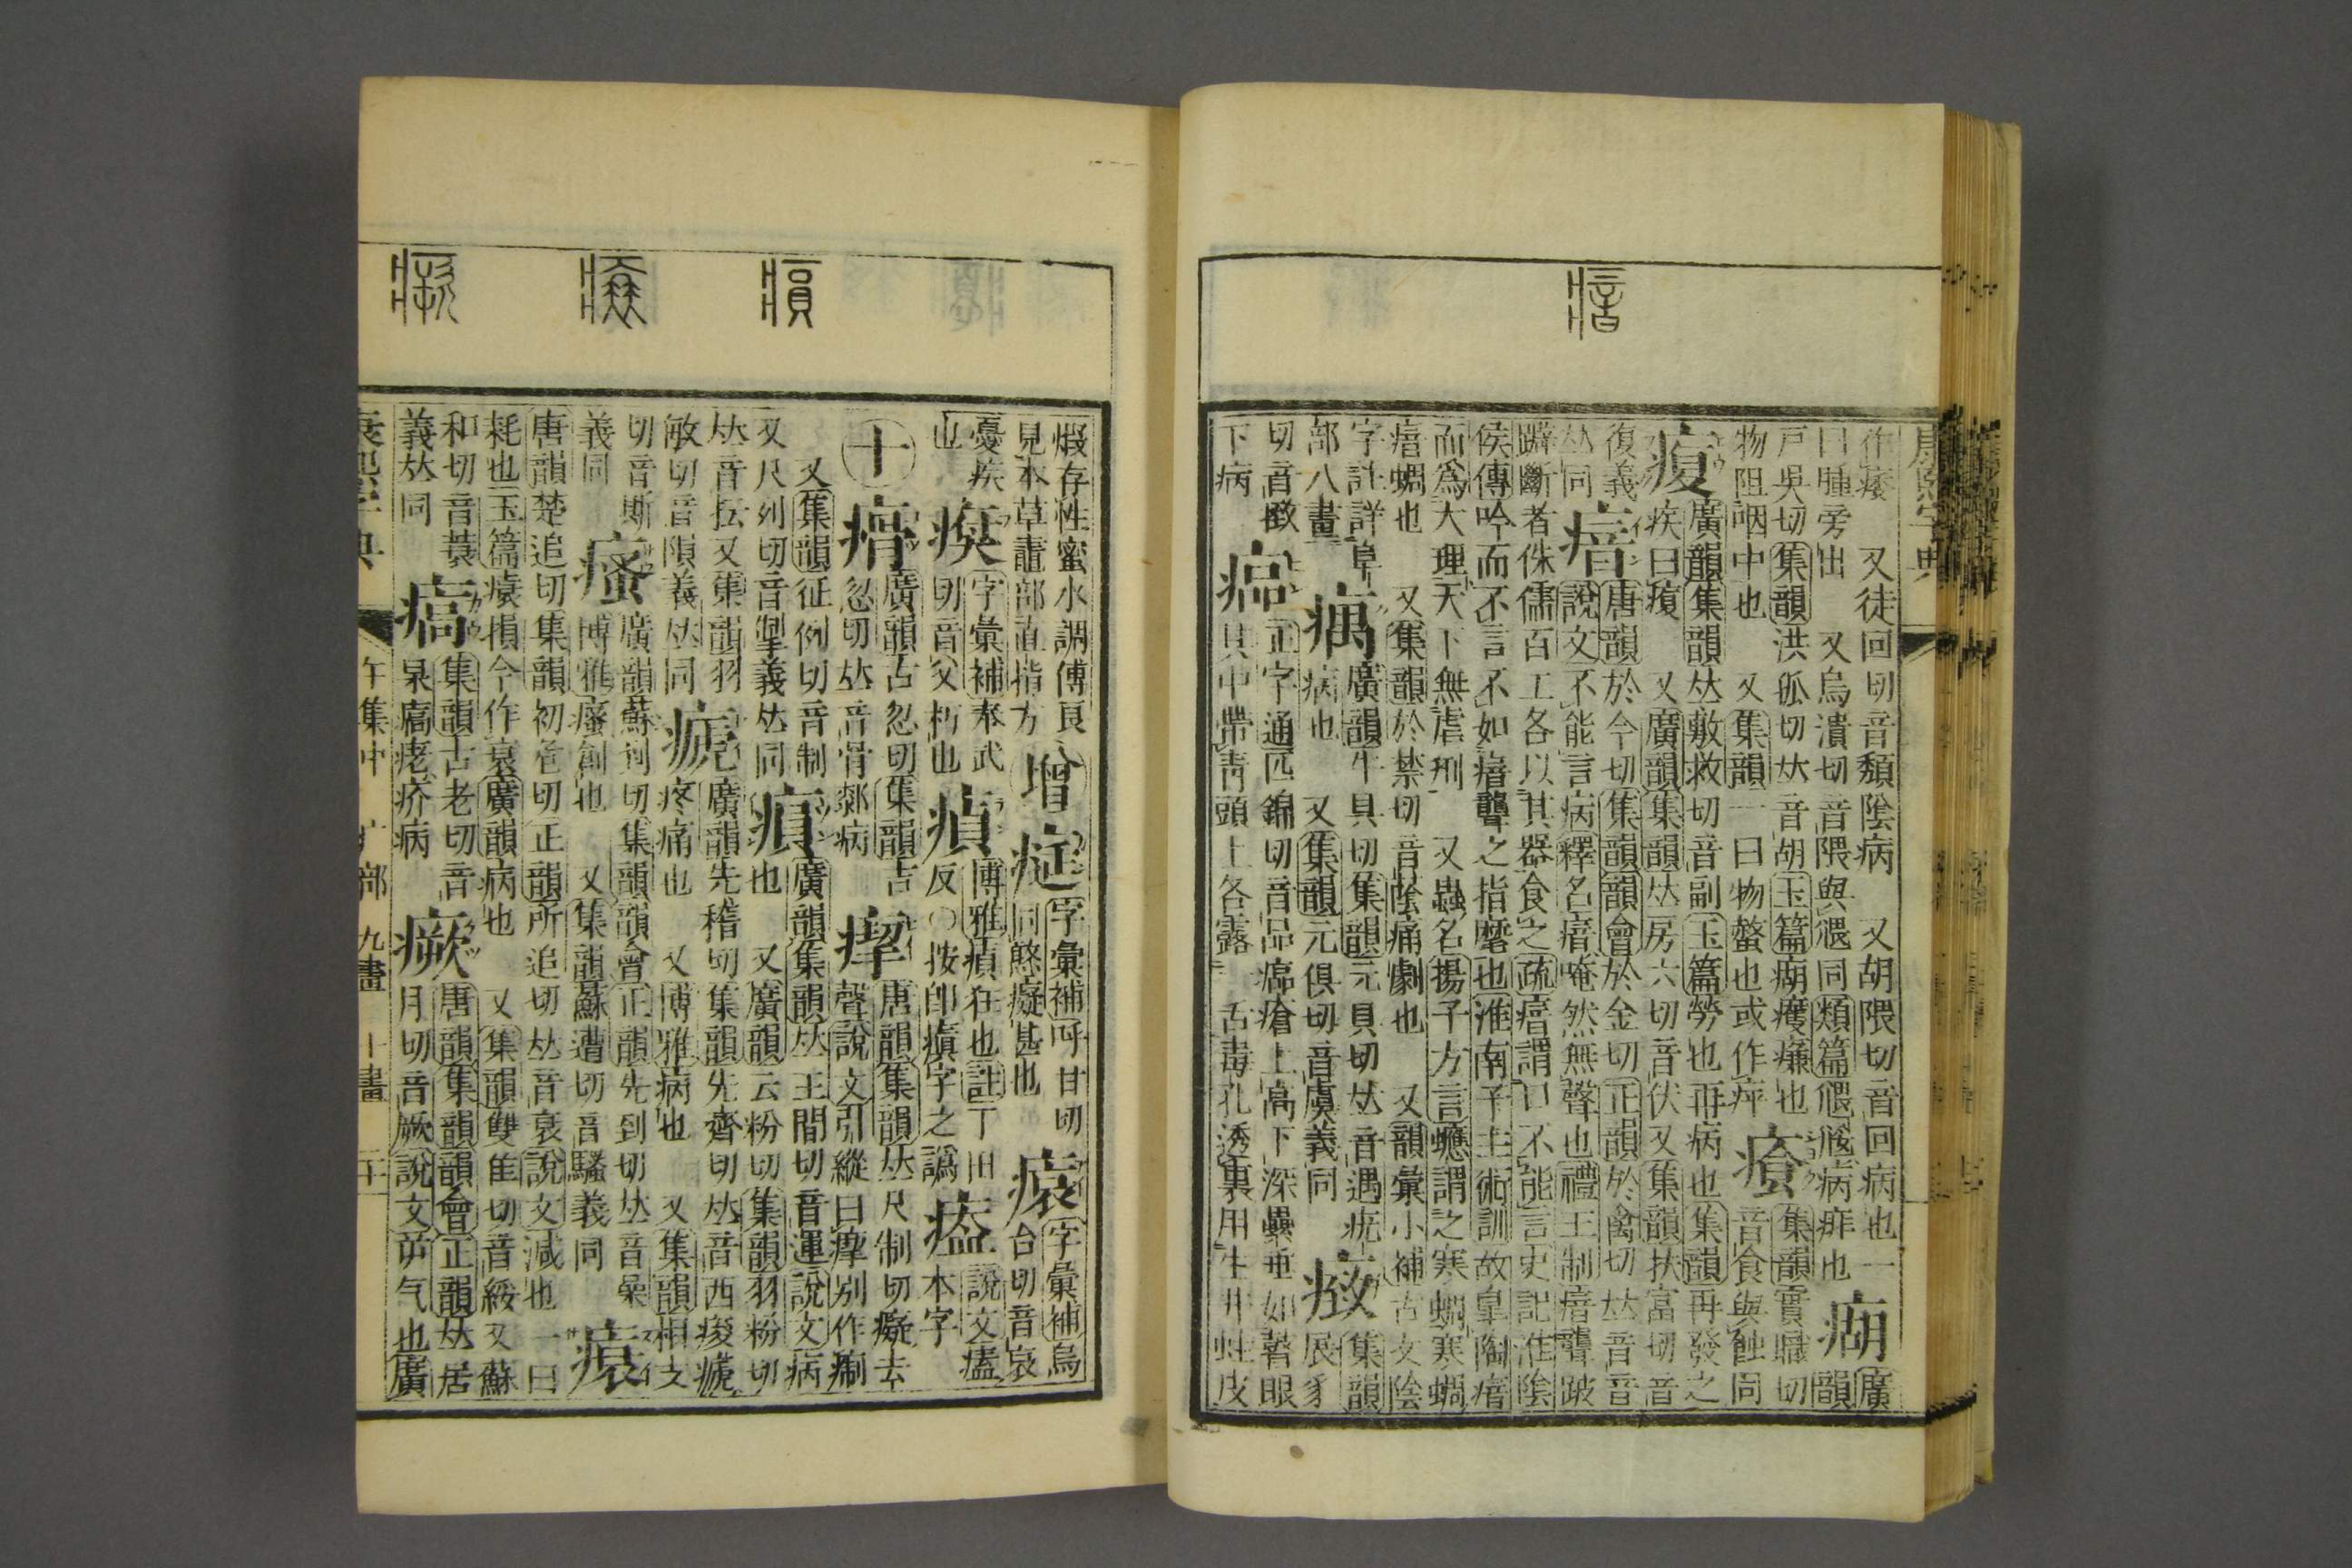 作痿 又徒回切音頹陰病 又胡隈切音回病也一
曰腫旁出 又烏潰切音隈與㾯同類篇病痱也
廣
韻
戶吳切集韻洪孤切𠀤音胡玉篇也
物阻咽中也 又集韻一曰物螫也或作
集韻實職切
音食與蝕同
廣韻集韻𠀤敷救切音副玉篇勞也再病也集韻再發之
疾曰 又廣韻集韻𠀤房六切音伏又集韻扶富切音
復義
𠀤同
瘖
唐韻於今切集韻韻會於金切正韻於禽切𠀤音音
說文不能言病釋名瘖唵然無聲也禮王制瘖聾跛
躃斷者侏儒百工各以其器食之疏瘖謂口不能言史記淮陰
侯傳吟而不言不如瘖聾之指麾也淮南子主術訓故臯陶瘖
而爲大理天下無虐刑 又蟲名揚子方言謂之寒蜩寒蜩
瘖蜩也 又集韻於禁切音蔭痛劇也 又韻彙小補古文陰
字註詳阜
部八畫
廣韻牛具切集韻元具切𠀤音遇疣
病也 又集韻元俱切音虞義同
集韻
展豸
切音緻
下病
正字通匹錦切音品瘡上高下深纍垂如瞽眼
其中帶靑頭上各露 舌毒孔透裏用生井蛙皮
煆存性蜜水調傅艮
見本草鼃部直指方
增
字彙補呼甘切
同憨癡甚也
字彙補烏
台切音哀
憂疾
也
字彙補奉武
切音父朽也
瘨
博雅瘨狂也註丁田
反〇按卽瘨字之譌
說文𤸎
本字
十
廣韻古忽切集韻吉
忽切𠀤音骨䣛病
瘛
唐韻集韻𠀤尺制切癡去
聲說文引縱曰瘛別作㓡
又集韻征例切音制
又尺列切音掣義𠀤同
廣韻集韻𠀤王問切音運說文病
也 又廣韻云粉切集韻羽粉切
𠀤音抎又集韻羽
敏切音隕義𠀤同
廣韻先稽切集韻先齊切𠀤音西痠㾷
疼痛也 又博雅病也 又集韻相支
切音斯
義同
瘙
廣韻蘇到切集韻韻會正韻先到切𠀤音喿
博雅瘙創也 又集韻蘇遭切音騷義同
唐韻楚追切集韻初危切正韻所追切𠀤音衰說文減也一曰
耗也玉篇損今作衰廣韻病也 又集韻雙隹切音綏又蘇
和切音蓑
義𠀤同
集韻古老切音
杲疥病
瘚
唐韻集韻韻會正韻𠀤居
月切音厥說文屰气也廣
康熙字典 午集中 疒部 九畫 十畫
康熙字典